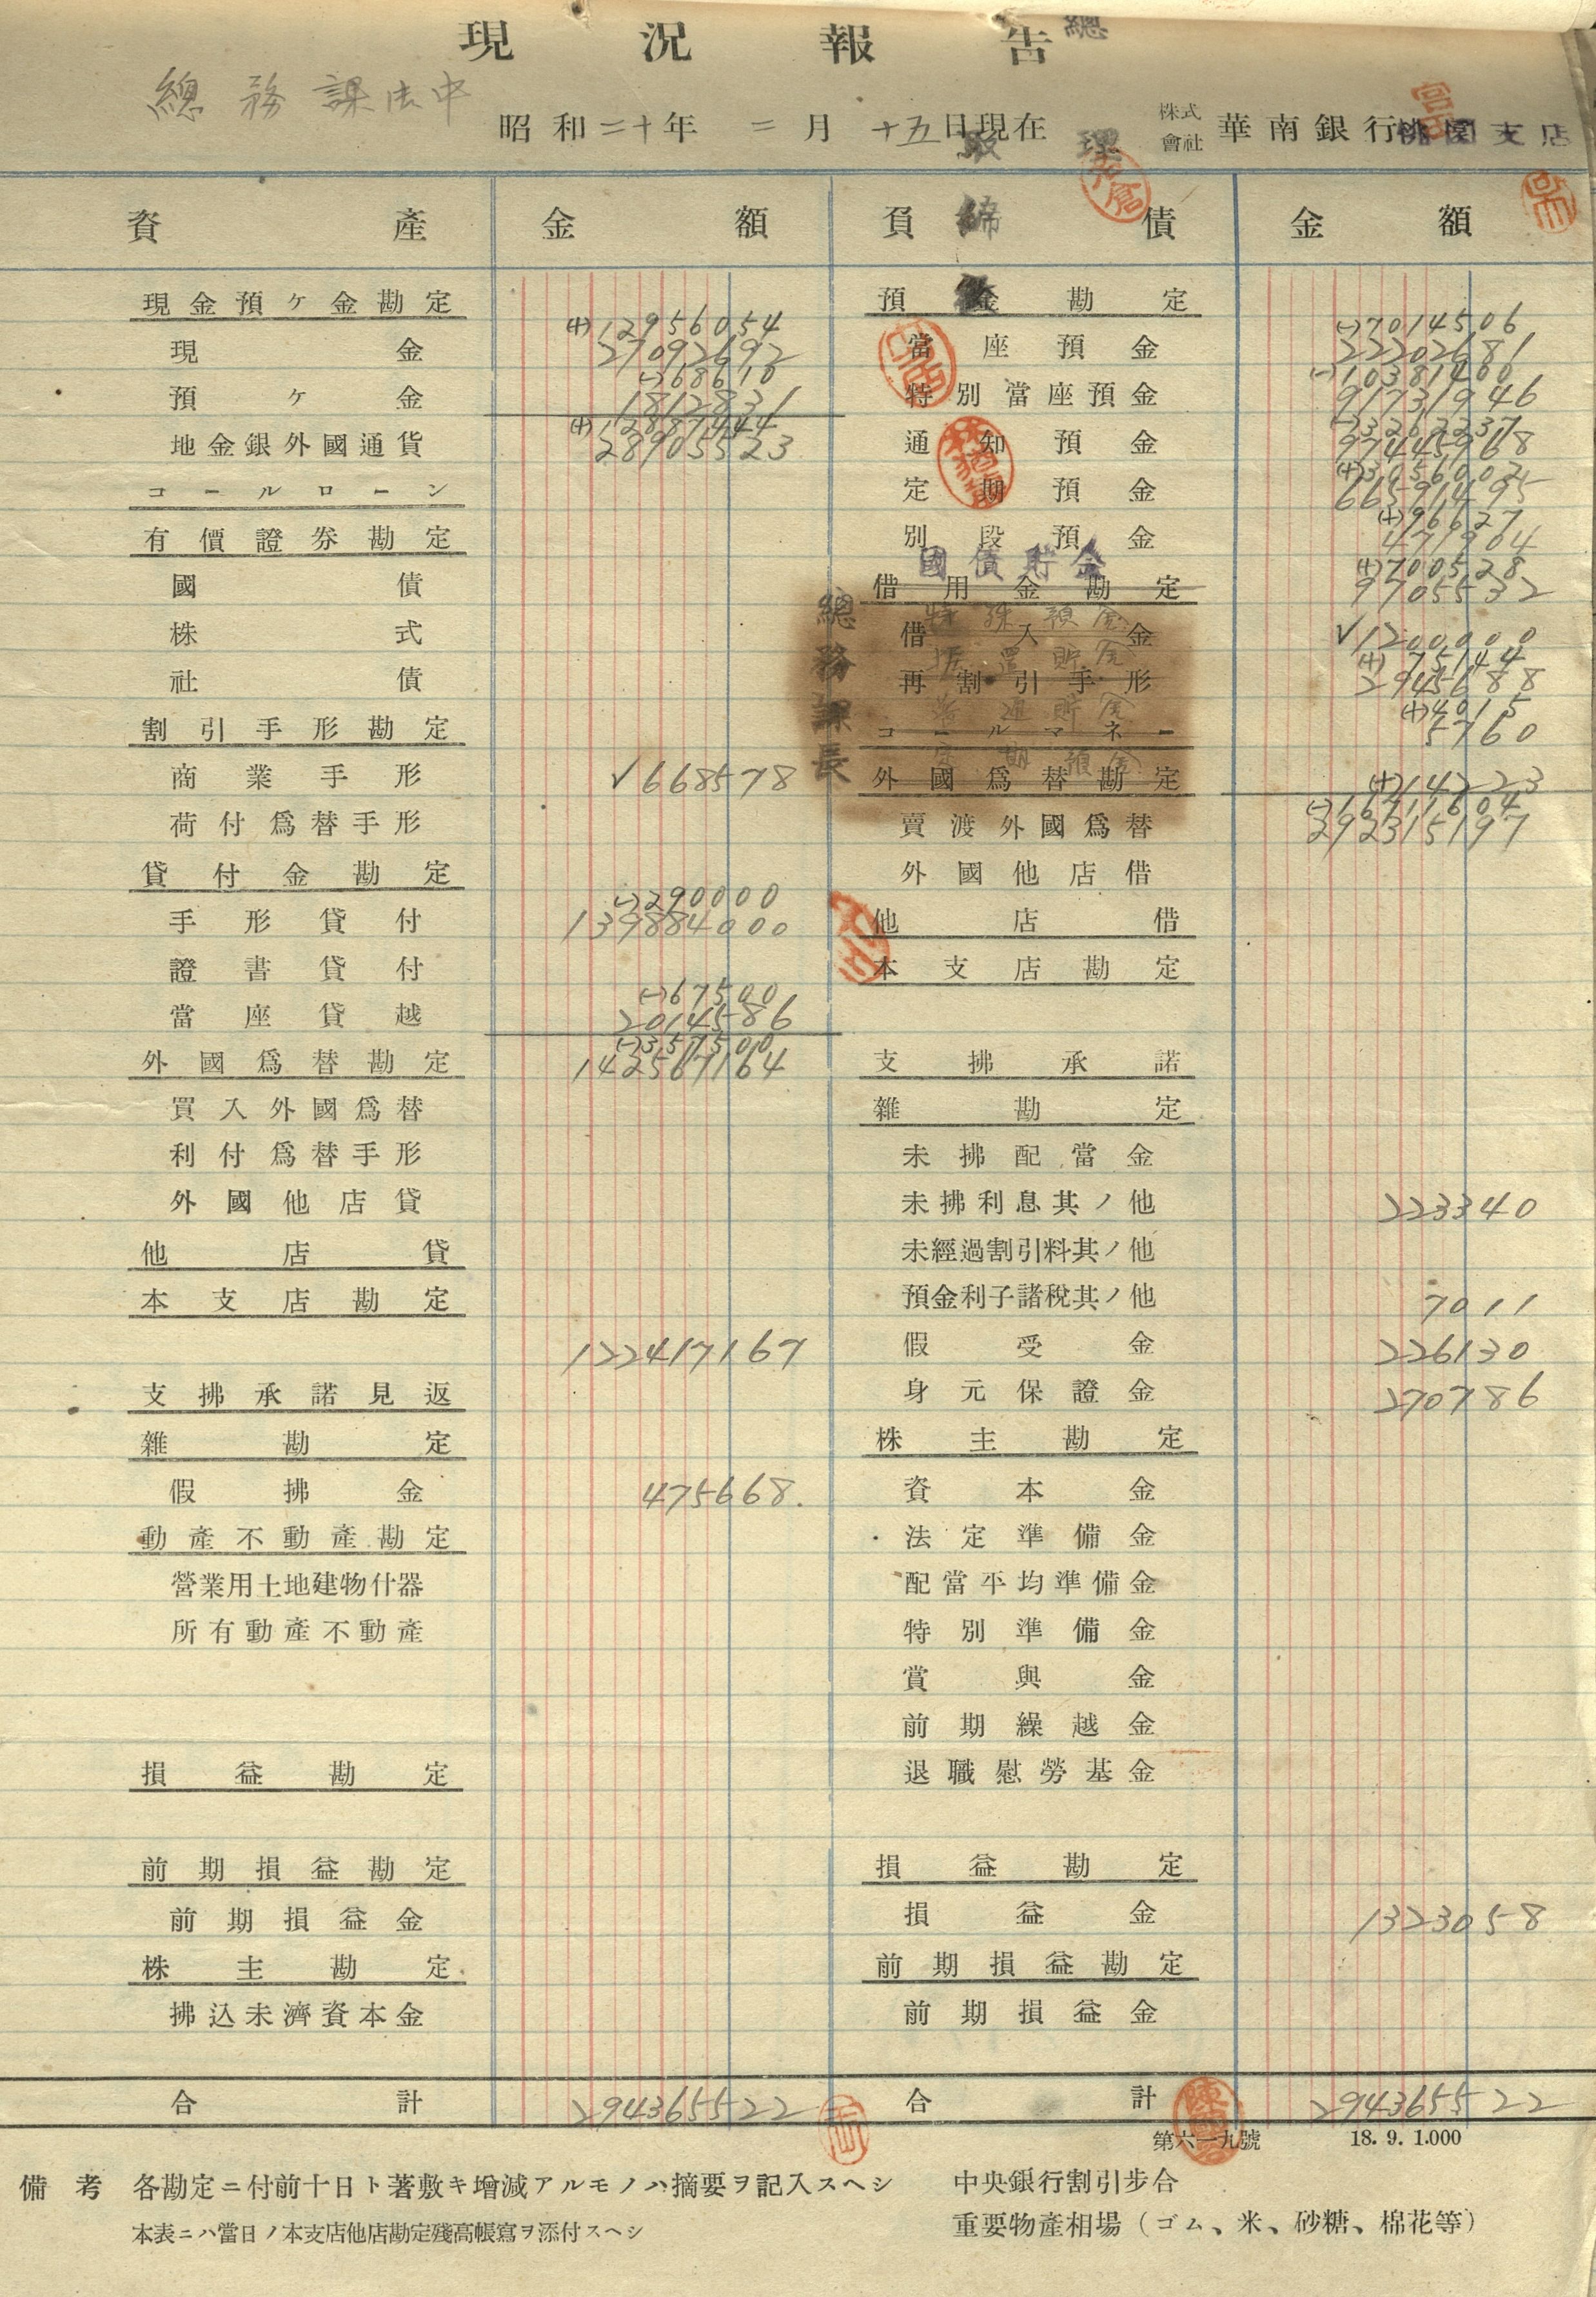 現況報告
總務課法中
昭和二十年 二月 十五日現在 株式會社 華南銀行桃園支店
資產 金額 負債 金額
現金預ケ金勘定 預金勘定
(+)12956054 (-)7014506
現金 27092692 當座預金 22202681
(-)68610
預ケ金 1812831 特別當座預金 91731946
(+)12887444
地金銀外國通貨 28905523 通知預金 97445968
(+)3056002
コールローン 定期預金 66591495
(+)96627
有價證券勘定 別段預金 471904
國債貯金 (+)700528
國債 借用金勘定 9705532
特殊預金 √1200000
株式 借入金
据置貯金 (+)75144
社債 再割引手形 2945688
普通貯金 (+)4015
割引手形勘定 コールマネー 5760
定期預金
商業手形 √668578 外國爲替勘定 (+)14223
荷付爲替手形 賣渡外國爲替 292315197
貸付金勘定 外國他店借
(-)290000
手形貸付 139884000 他店借
證書貸付 本支店勘定
(-)67500
當座貸越 2014586
(-)357500
外國爲替勘定 142567164 支拂承諾
買入外國爲替 雜勘定
利付爲替手形 未拂配當金
外國他店貸 未拂利息其ノ他 223340
他店貸 未經過割引料其ノ他
本支店勘定 預金利子諸稅其ノ他 7011
122417167 假受金 226130
支拂承諾見返 身元保證金 270786
雜勘定 株主勘定
假拂金 475668. 資本金
動產不動產勘定 法定準備金
營業用土地建物什器 配當平均準備金
所有動產不動產 特別準備金
賞與金
前期繰越金
損益勘定 退職慰勞基金
前期損益勘定 損益勘定
前期損益金 損益金 1323058
株主勘定 前期損益勘定
拂込未濟資本金 前期損益金
合計 294365522 合計 294365522
第六一九號 18. 9. 1.000
備考 各勘定ニ付前十日ト著敷キ增減アルモノハ摘要ヲ記入スヘシ 中央銀行割引步合
本表ニハ當日ノ本支店他店勘定殘高帳寫ヲ添付スヘシ 重要物產相場（ゴム、米、砂糖、棉花等）
總務課長